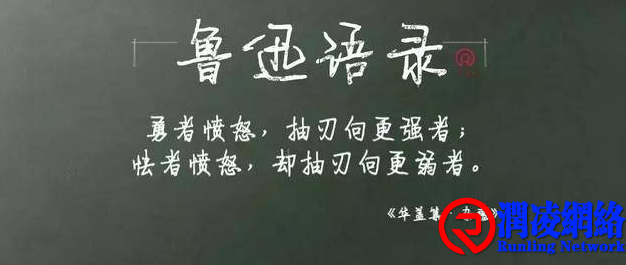 鲁迅语录
勇者愤怒，抽刃向更强者；
怯者愤怒，却抽刃向更弱者。
《华盖集·杂感》
潤凌網絡
Runling Network